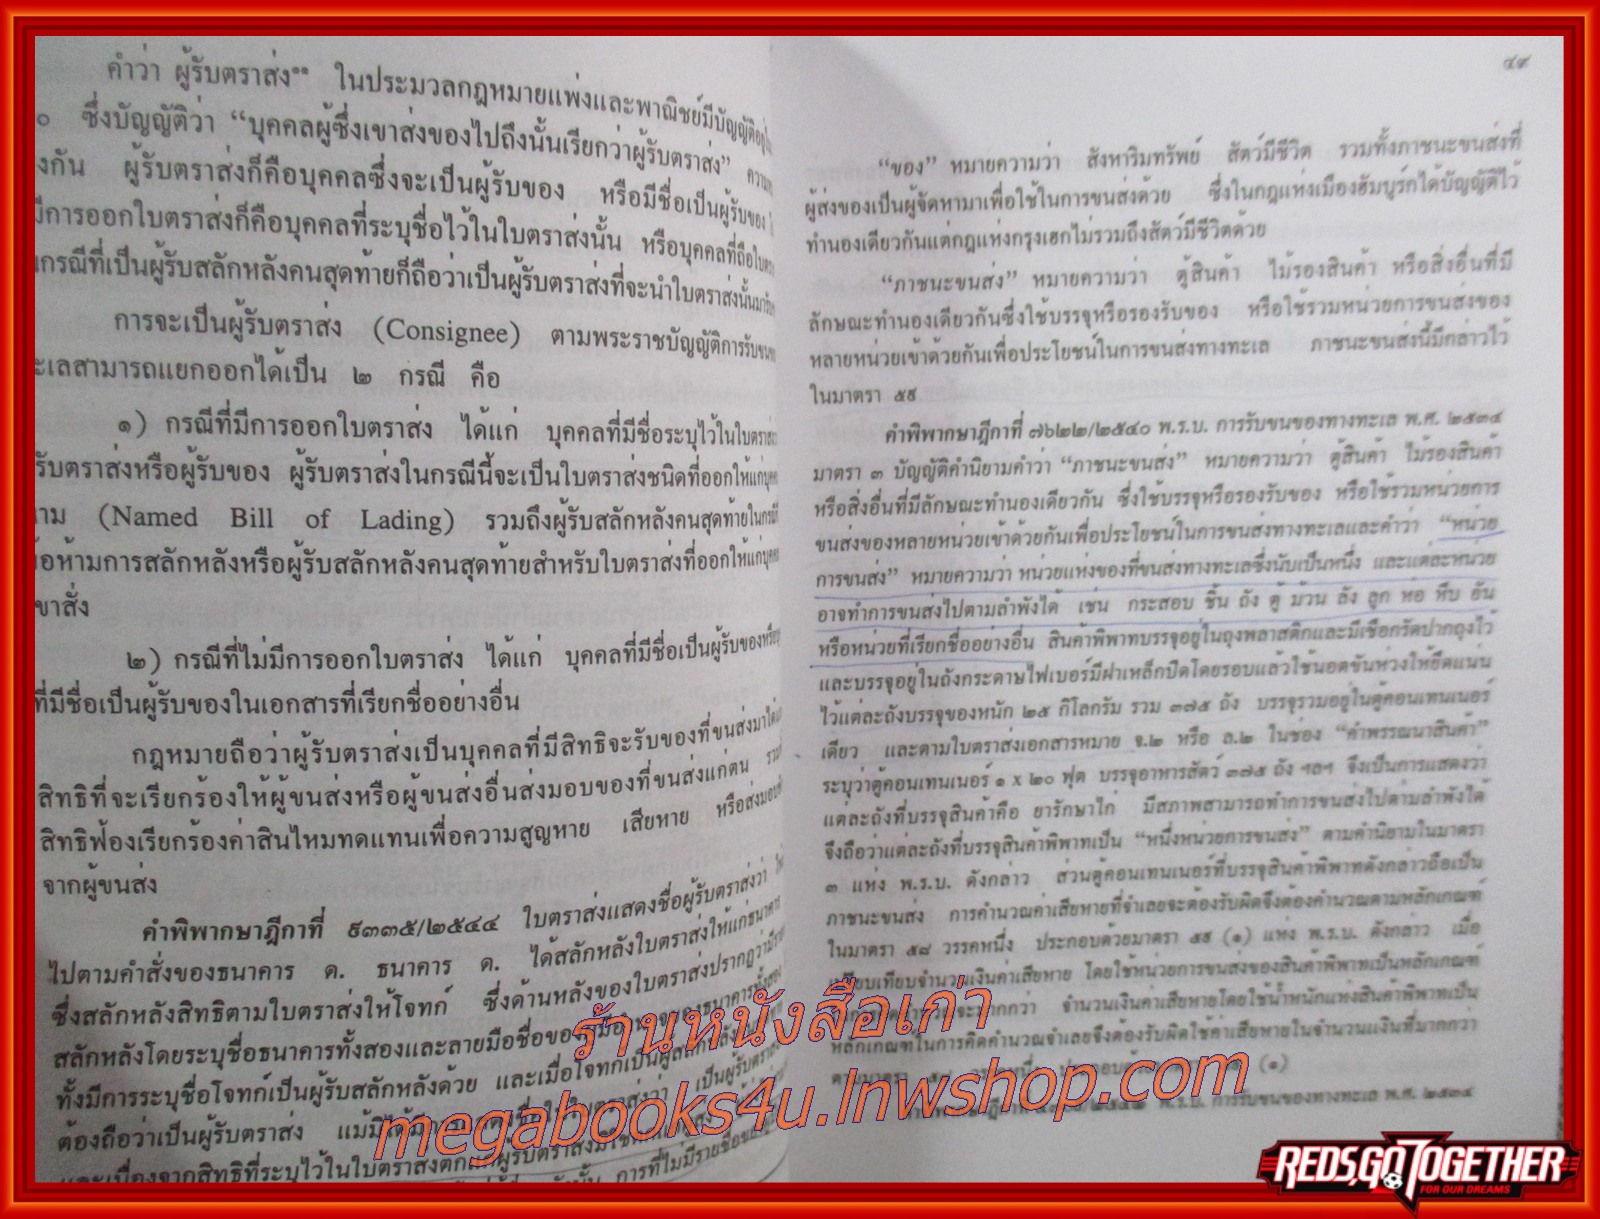 คำว่า ผู้รับตราส่ง ในประมวลกฎหมายแพ่งและพาณิชย์มีบัญญัติอยู่
๐ ซึ่งบัญญัติว่า “บุคคลผู้ซึ่งเขาส่งของไปถึงนั้นเรียกว่าผู้รับตราส่ง”
งกัน ผู้รับตราส่งก็คือบุคคลซึ่งจะเป็นผู้รับของ หรือมีชื่อเป็นผู้รับของ
มีการออกใบตราส่งก็คือบุคคลที่ระบุชื่อไว้ในใบตราส่งนั้น หรือบุคคลที่ถือใบตรา
นกรณีที่เป็นผู้รับสลักหลังคนสุดท้ายก็ถือว่าเป็นผู้รับตราส่งที่จะนำใบตราส่งนั้นมา
การจะเป็นผู้รับตราส่ง (Consignee) ตามพระราชบัญญัติการรับขน
ะเลสามารถแยกออกได้เป็น ๒ กรณี คือ
๑) กรณีที่มีการออกใบตราส่ง ได้แก่ บุคคลที่มีชื่อระบุไว้ในใบตราส่ง
รับตราส่งหรือผู้รับของ ผู้รับตราส่งในกรณีนี้จะเป็นใบตราส่งชนิดที่ออกให้แก่บุคค
าม (Named Bill of Lading) รวมถึงผู้รับสลักหลังคนสุดท้ายในกรณี
้อห้ามการสลักหลังหรือผู้รับสลักหลังคนสุดท้ายสำหรับใบตราส่งที่ออกให้แก่บุคค
ขาสั่ง
๒) กรณีที่ไม่มีการออกใบตราส่ง ได้แก่ บุคคลที่มีชื่อเป็นผู้รับของหรือ
ที่มีชื่อเป็นผู้รับของในเอกสารที่เรียกชื่ออย่างอื่น
กฎหมายถือว่าผู้รับตราส่งเป็นบุคคลที่มีสิทธิจะรับของที่ขนส่งมา
สิทธิที่จะเรียกร้องให้ผู้ขนส่งหรือผู้ขนส่งอื่นส่งมอบของที่ขนส่งแก่ตน รวม
สิทธิฟ้องเรียกร้องค่าสินไหมทดแทนเพื่อความสูญหาย เสียหาย หรือส่งมอบ
จากผู้ขนส่ง
คำพิพากษาฎีกาที่ ๕๓๓๕/๒๕๔๔ ใบตราส่งแสดงชื่อผู้รับตราส่งว่า
ไปตามคำสั่งของธนาคาร ด. ธนาคาร ด. ได้สลักหลังใบตราส่งให้แก่ธนาคาร
ซึ่งสลักหลังสิทธิตามใบตราส่งให้โจทก์ ซึ่งด้านหลังของใบตราส่งปรากฏว่ามี
สลักหลังโดยระบุชื่อธนาคารทั้งสองและลายมือชื่อของผู้มีอำนาจของธนาคารทั้งสอง
ทั้งมีการระบุชื่อโจทก์เป็นผู้รับสลักหลังด้วย และเมื่อโจทก์เป็นผู้
ต้องถือว่าเป็นผู้รับตราส่ง แม้มิได้ เป็นผู้รับตรา
และเนื่องจากสิทธิที่ระบุไว้ในใบตราส่งตกแก่ผู้รับตราส่ง
การที่ไม่มีรายชื่อ
๔๙
“ของ” หมายความว่า สังหาริมทรัพย์ สัตว์มีชีวิต รวมทั้งภาชนะขนส่งที่
ผู้ส่งของเป็นผู้จัดหามาเพื่อใช้ในการขนส่งด้วย ซึ่งในกฎแห่งเมืองฮัมบูร์กได้บัญญัติไว้
ทำนองเดียวกันแต่กฎแห่งกรุงเฮกไม่รวมถึงสัตว์มีชีวิตด้วย
“ภาชนะขนส่ง” หมายความว่า ตู้สินค้า ไม้รองสินค้า หรือสิ่งอื่นที่มี
ลักษณะทำนองเดียวกันซึ่งใช้บรรจุหรือรองรับของ หรือใช้รวมหน่วยการขนส่งของ
หลายหน่วยเข้าด้วยกันเพื่อประโยชน์ในการขนส่งทางทะเล ภาชนะขนส่งนี้มีกล่าวไว้
ในมาตรา ๕๙
คำพิพากษาฎีกาที่ ๗๖๒๒/๒๕๔๐ พ.ร.บ. การรับขนของทางทะเล พ.ศ. ๒๕๓๔
มาตรา ๓ บัญญัติคำนิยามคำว่า “ภาชนะขนส่ง” หมายความว่า ตู้สินค้า ไม้รองสินค้า
หรือสิ่งอื่นที่มีลักษณะทำนองเดียวกัน ซึ่งใช้บรรจุหรือรองรับของ หรือใช้รวมหน่วยการ
ขนส่งของหลายหน่วยเข้าด้วยกันเพื่อประโยชน์ในการขนส่งทางทะเลและคำว่า “หน่วย
การขนส่ง” หมายความว่า หน่วยแห่งของที่ขนส่งทางทะเลซึ่งนับเป็นหนึ่ง และแต่ละหน่วย
อาจทำการขนส่งไปตามลำพังได้ เช่น กระสอบ ชิ้น ถัง ตู้ ม้วน ลัง ลูก ห่อ หีบ อัน
หรือหน่วยที่เรียกชื่ออย่างอื่น สินค้าพิพาทบรรจุอยู่ในถุงพลาสติกและมีเชือกรัดปากถุงไว้
และบรรจุอยู่ในถังกระดาษไฟเบอร์มีฝาเหล็กปิดโดยรอบแล้วใช้นอตขันห่วงให้ยึดแน่น
ไว้แต่ละถังบรรจุของหนัก ๒๕ กิโลกรัม รวม ๓๗๕ ถัง บรรจุรวมอยู่ในตู้คอนเทนเนอร์
เดียว และตามใบตราส่งเอกสารหมาย จ.๒ หรือ ล.๒ ในช่อง “คำพรรณนาสินค้า”
ระบุว่าตู้คอนเทนเนอร์ ๑ x ๒๐ ฟุต บรรจุอาหารสัตว์ ๓๗๕ ถัง ฯลฯ จึงเป็นการแสดงว่า
แต่ละถังที่บรรจุสินค้าคือ ยารักษาไก่ มีสภาพสามารถทำการขนส่งไปตามลำพังได้
จึงถือว่าแต่ละถังที่บรรจุสินค้าพิพาทเป็น “หนึ่งหน่วยการขนส่ง” ตามคำนิยามในมาตรา
๓ แห่ง พ.ร.บ. ดังกล่าว ส่วนตู้คอนเทนเนอร์ที่บรรจุสินค้าพิพาทดังกล่าวถือเป็น
ภาชนะขนส่ง การคำนวณค่าเสียหายที่จำเลยจะต้องรับผิดจึงต้องคำนวณตามหลักเกณฑ์
ในมาตรา ๕๘ วรรคหนึ่ง ประกอบด้วยมาตรา ๕๙ (๑) แห่ง พ.ร.บ. ดังกล่าว เมื่อ
เปรียบเทียบจำนวนเงินค่าเสียหาย โดยใช้หน่วยการขนส่งของสินค้าพิพาทเป็นหลักเกณฑ์
จะมากกว่า จำนวนเงินค่าเสียหายโดยใช้น้ำหนักแห่งสินค้าพิพาทเป็น
หลักเกณฑ์ในการคิดคำนวณจำเลยจึงต้องรับผิดใช้ค่าเสียหายในจำนวนเงินที่มากกว่า
ตามมาตรา ๕๘ วรรคหนึ่ง ประกอบด้วย (๑)
พ.ร.บ. การรับขนของทางทะเล พ.ศ. ๒๕๓๔
ร้านหนังสือเก่า
megabooks4u.lnwshop.com
REDS,GO TOGETHER
FOR OUR DREAMS